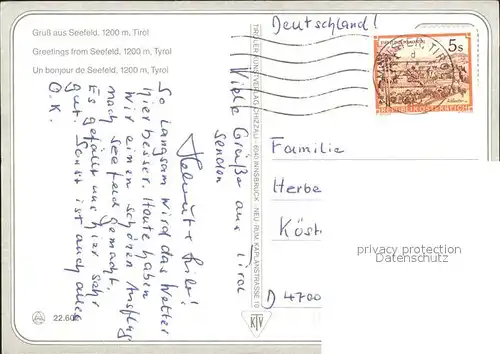 Gruß aus Seefeld, 1200 m, Tirol
Greetings from Seefeld, 1200 m, Tyrol
Un bonjour de Seefeld, 1200 m, Tyrol
So langsam wird das Wetter
hier besser. Heute haben
wir einen schönen Ausflug
nach Seefeld gemacht.
Es gefällt uns hier sehr
gut. Sonst ist auch alles
O.K.
Viele Grüße aus Tirol
senden
Helmut +
TIROLER KUNSTVERLAG CHIZZALI · 6041 INNSBRUCK NEU RUM, KAPLANSTRASSE 10
KTV
22.60
Deutschland!
5s
REPUBLIK ÖSTERREICH
Familie
Herbe
Köst
D 4700
privacy protection
Datenschutz